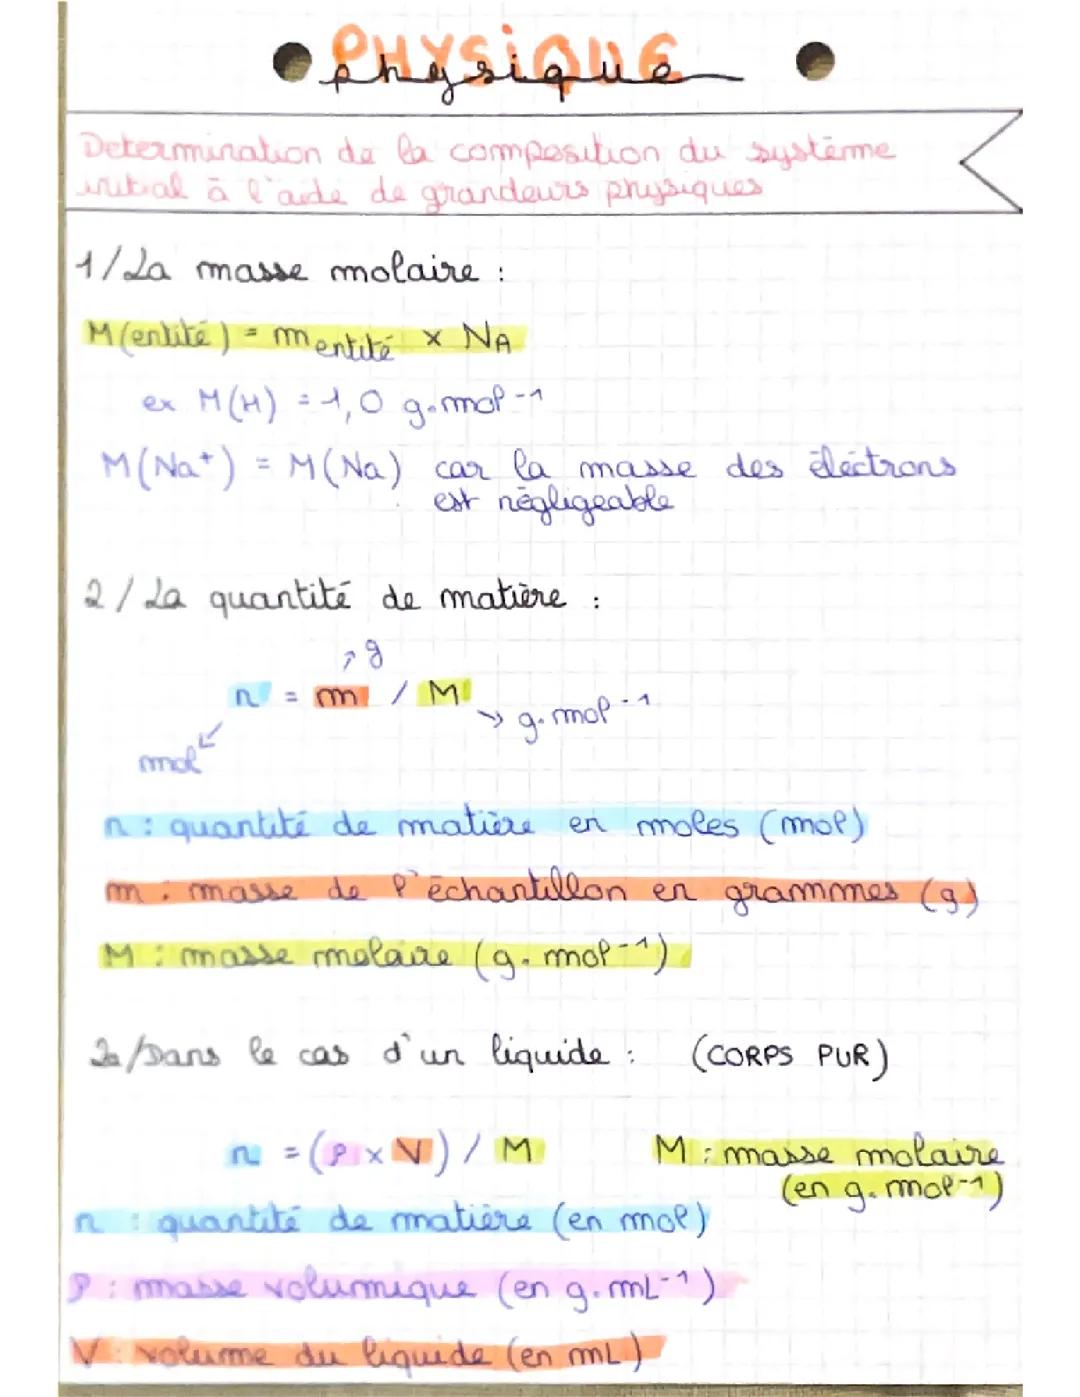 PHYSIQUE
physique
Determination de la composition du système
initial à l'aide de grandeurs physiques
1/ La masse molaire :
M(entité) = m entité × NA
ex M(H) = 1,0 g.mol-1
M(Na+) = M(Na) car la masse des électrons
est négligeable
2/ La quantité de matière :
↗ g
n = m / M
↘ g.mol-1
mol ↙
n : quantité de matière en moles (mol)
m : masse de l'échantillon en grammes (g)
M : masse molaire (g.mol-1)
2a/ Dans le cas d'un liquide : (CORPS PUR)
n = (ρ × V) / M
M : masse molaire
(en g.mol-1)
n : quantité de matière (en mol)
ρ : masse volumique (en g.mL-1)
V : volume du liquide (en mL)